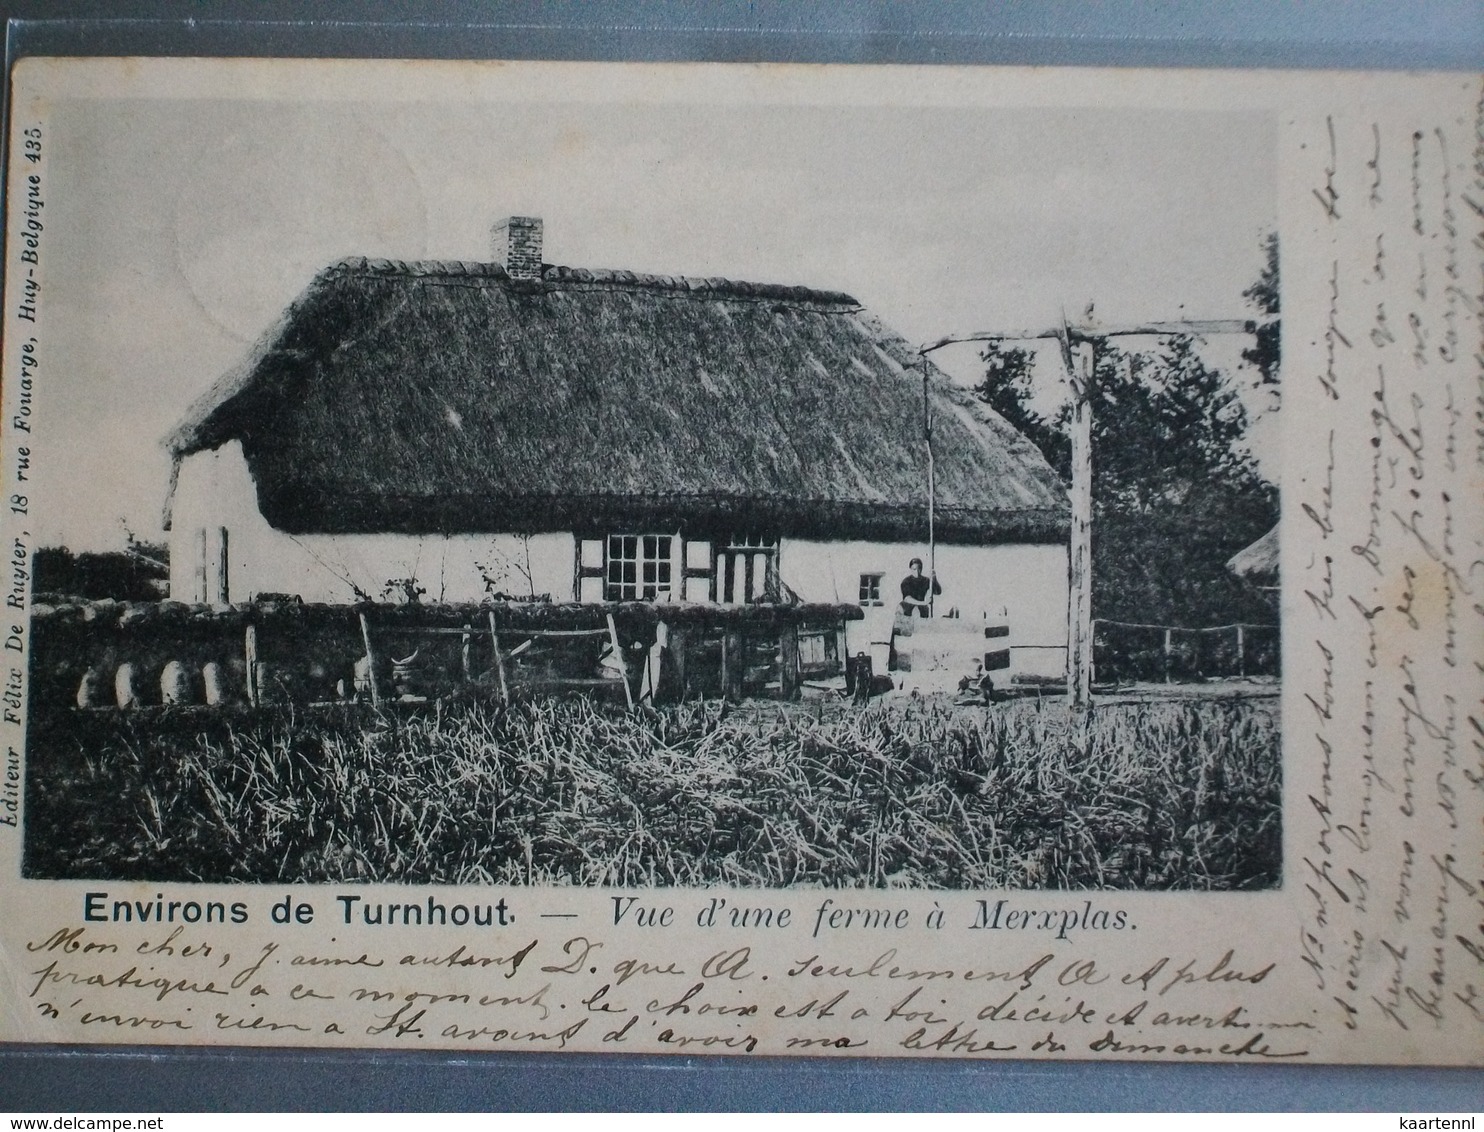 Editeur Félix De Ruyter, 18 rue Fouarge, Huy-Belgique 435.
Environs de Turnhout. — Vue d'une ferme à Merxplas.
Mon cher, J. aime autant D. que A. seulement A et plus
pratique a ce moment. le choix est a toi décide et avertis-moi
n'envoi rien a St. avant d'avoir ma lettre du Dimanche
portons tous très bien soigne toi
et écris ns longuement. Dommage qu'on ne
peut vous envoyer des pêches ns en avons
beaucoup. Ns vous envoyons une cargaison
www.delcampe.net
kaartennl